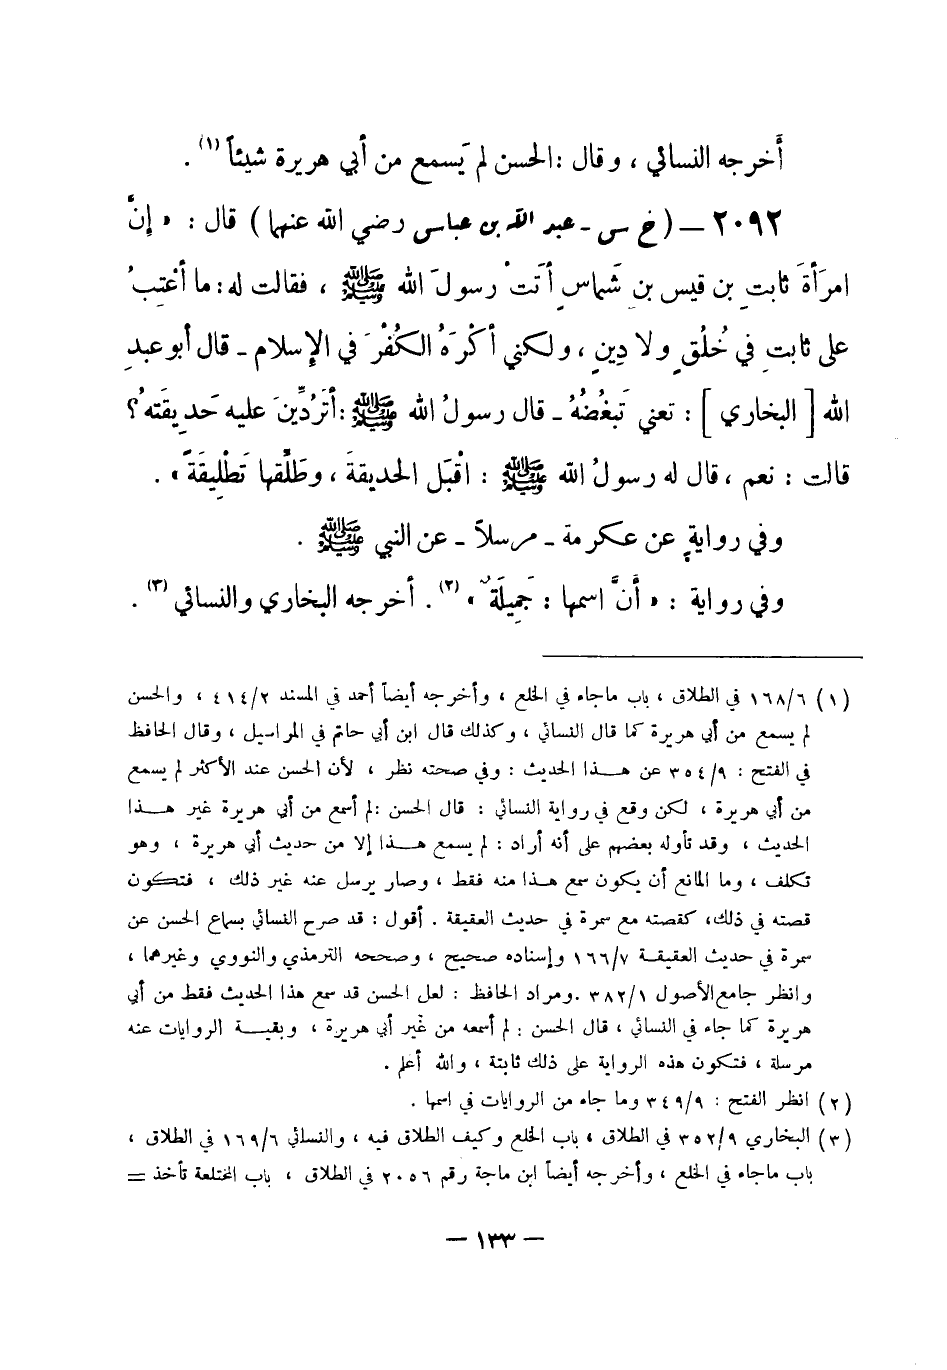 أَخرجه النسائي ، وقال : الحسن لم يَسمع من أبي هريرة شيئاً (١) .
٢٠٩٢ – (خ س - عبد الله بن عباس رضي الله عنهما) قال : « إنَّ
امرَأةَ ثابتِ بن قيس بن شَماسٍ أتَتْ رسولَ الله ﷺ ، فقالت له : ما أعْتِبُ
على ثابتٍ في خُلُقٍ ولا دِينٍ ، ولكني أكْرَهُ الكُفْرَ في الإسلام - قال أبو عبدِ
الله [ البخاري ] : تعني تَبغُضُهُ - قال رسولُ الله ﷺ : أتَرُدِّينَ عليه حَديقَتهُ ؟
قالت : نعم ، قال له رسولُ الله ﷺ : اقْبَل الحديقةَ ، وطَلِّقها تَطْلِيقَةً » .
وفي روايةٍ عن عكرمة - مرسلاً - عن النبي ﷺ .
وفي رواية : « أنَّ اسمها : جَمِيلَةٌ » (٢) . أخرجه البخاري والنسائي (٣) .
(١) ١٦٨/٦ في الطلاق ، باب ماجاء في الخلع ، وأخرجه أيضاً أحمد في المسند ٤١٤/٢ ، والحسن
لم يسمع من أبي هريرة كما قال النسائي ، وكذلك قال ابن أبي حاتم في المراسيل ، وقال الحافظ
في الفتح : ٣٥٤/٩ عن هـذا الحديث : وفي صحته نظر ، لأن الحسن عند الأكثر لم يسمع
من أبي هريرة ، لكن وقع في رواية النسائي : قال الحسن : لم أسمع من أبي هريرة غير هـذا
الحديث ، وقد تأوله بعضهم على أنه أراد : لم يسمع هـذا إلا من حديث أبي هريرة ، وهو
تكلف ، وما المانع أن يكون سمع هـذا منه فقط ، وصار يرسل عنه غير ذلك ، فتكون
قصته في ذلك، كقصته مع سمرة في حديث العقيقة . أقول : قد صرح النسائي بسماع الحسن عن
سمرة في حديث العقيقة ١٦٦/٧ وإسناده صحيح ، وصححه الترمذي والنووي وغيرهما ،
وانظر جامع الأصول ٣٨٢/١ . ومراد الحافظ : لعل الحسن قد سمع هذا الحديث فقط من أبي
هريرة كما جاء في النسائي ، قال الحسن : لم أسمعه من غير أبي هريرة ، وبقية الروايات عنه
مرسلة ، فتكون هذه الرواية على ذلك ثابتة ، والله أعلم .
(٢) انظر الفتح : ٣٤٩/٩ وما جاء من الروايات في اسمها .
(٣) البخاري ٣٥٢/٩ في الطلاق ، باب الخلع وكيف الطلاق فيه ، والنسائي ١٦٩/٦ في الطلاق ،
باب ماجاء في الخلع ، وأخرجه أيضاً ابن ماجة رقم ٢٠٥٦ في الطلاق ، باب المختلعة تأخذ =
– ١٣٣ –